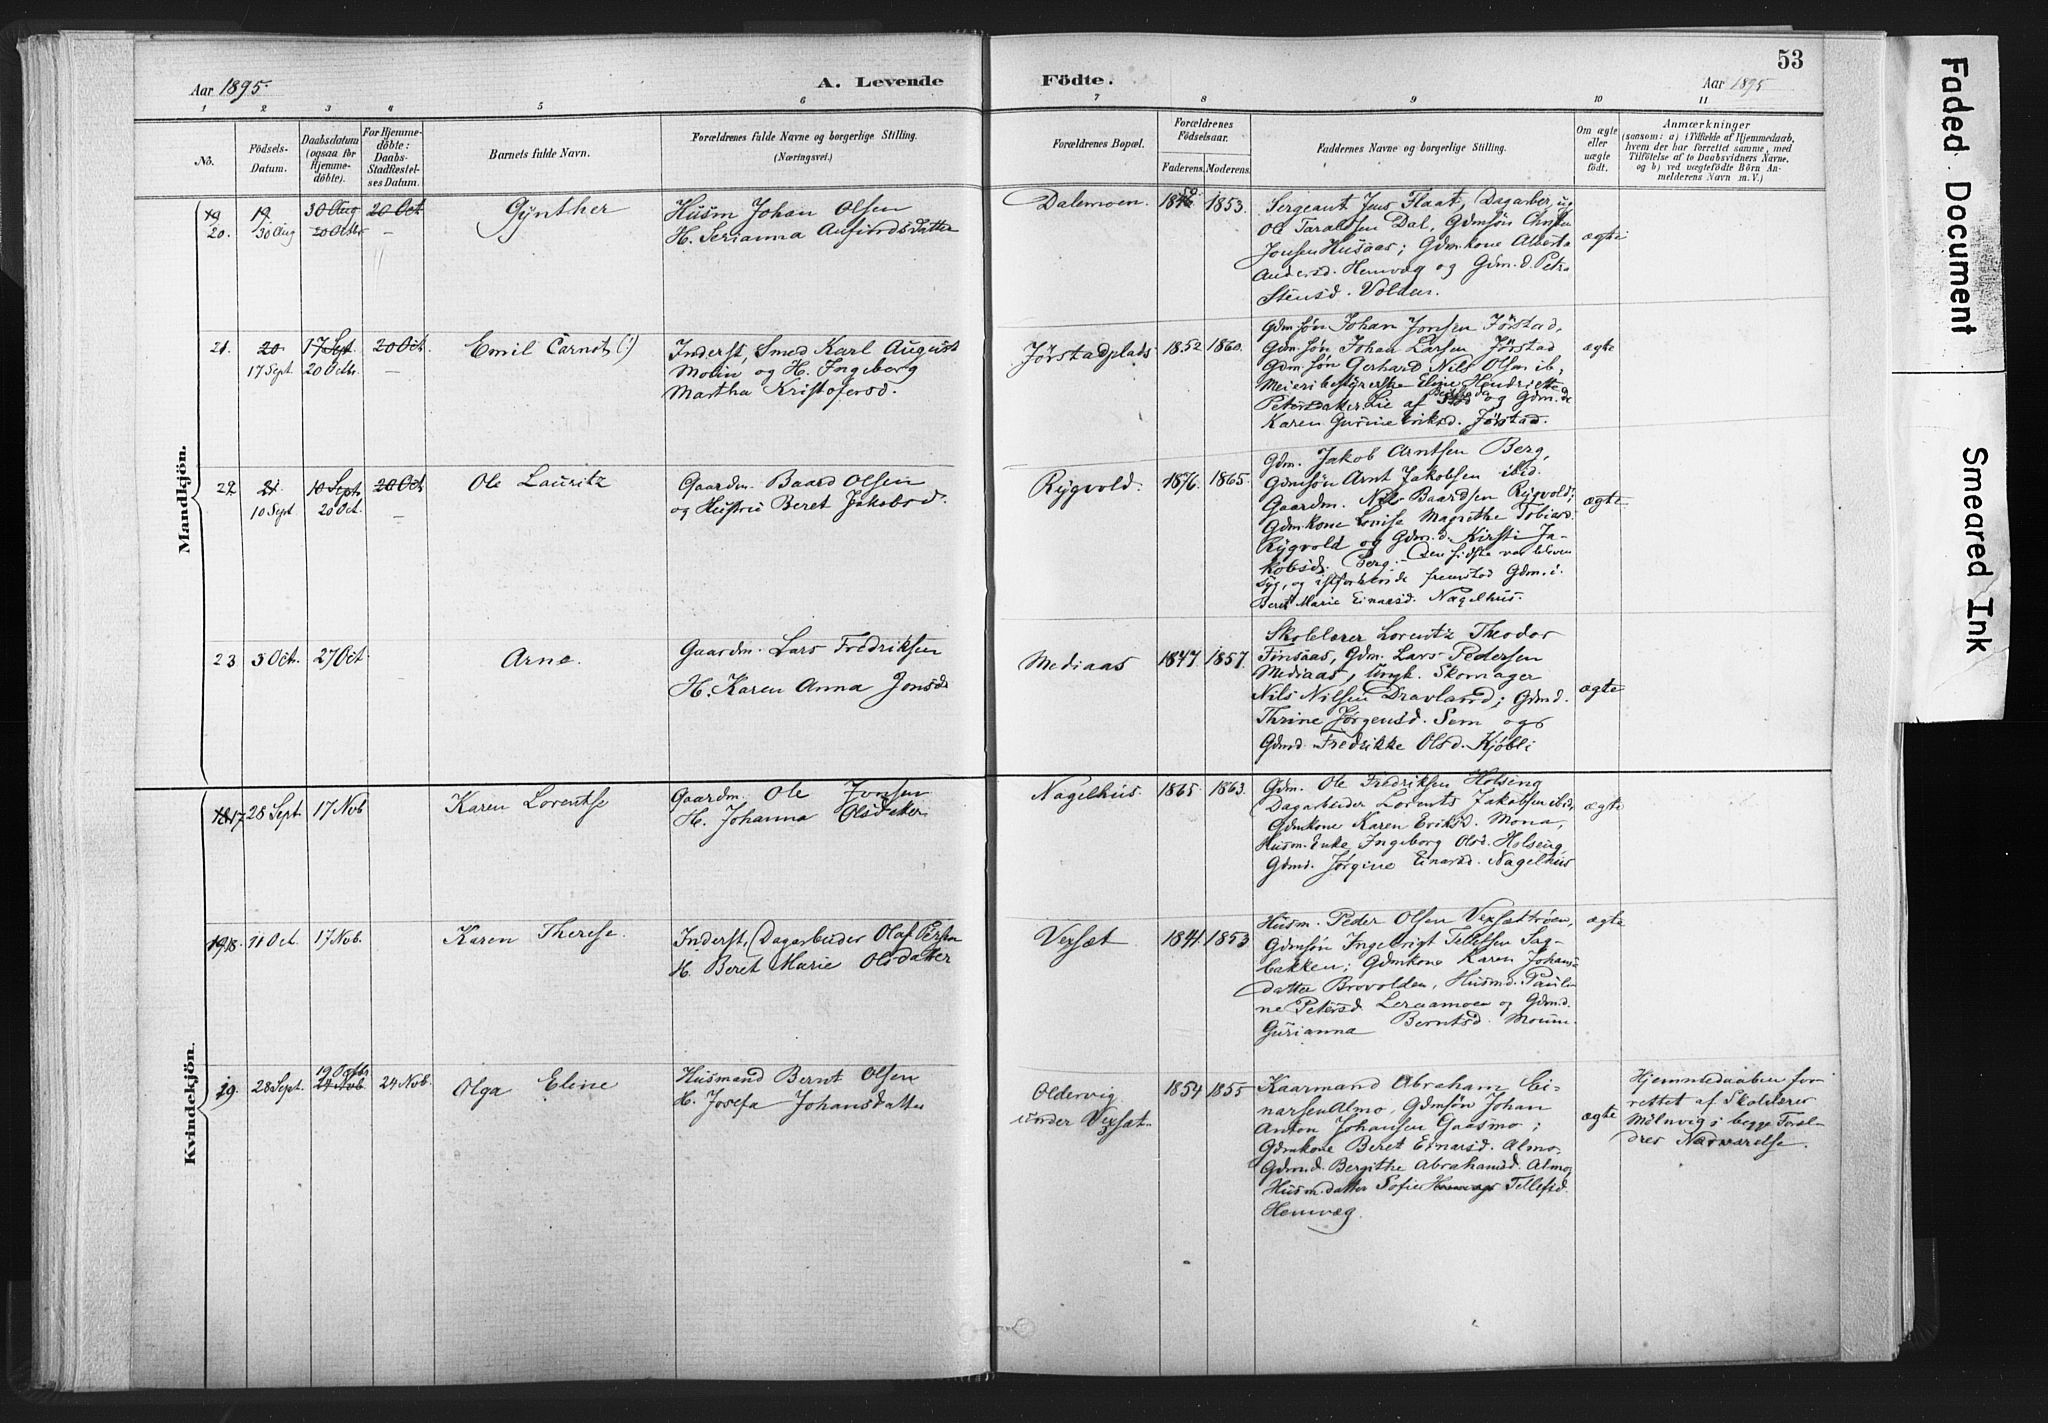 53
Aar 1895.
A. Levende
Födte.
Aar 1895
1 2 3 4 5 6 7 8 9 10 11
No.
Födsels-
Datum.
Daabsdatum
(ogsaa for
Hjemme-
döbte).
For Hjemme-
döbte:
Daabs-
Stadfæstel-
ses Datum.
Barnets fulde Navn.
Forældrenes fulde Navne og borgerlige Stilling.
(Næringsvei.)
Forældrenes Bopæl.
Forældrenes
Födselsaar.
Faderens.
Moderens.
Faddernes Navne og borgerlige Stilling.
Om ægte
eller
uægte
födt.
Anmærkninger
(saasom: a) i Tilfælde af Hjemmedaab,
hvem der har forrettet samme, med
Tilföielse af to Daabsvidners Navne,
og b) ved uægtefödte Börn An-
melderens Navn m. V.)
Mandkjön.
19 19 30 Aug 20 Oct
20. 30 Aug 20 Octbr —
Gynther
Husm Johan Olsen
H. Serianna Anfindsdatter
Dalemoen.
1850 1853.
Sergeant Jens Flaat, Dagarbeider
Ole Taraldsen Dal, Gdmsøn
Jonsen Husaas; Gdmkone Alberta
Andersd. Hemvæg og Gdm.d. Petra
Stensd. Volden.
ægte
21. 20 17 Sept 20 Oct.
17 Sept 20 Octbr. —
Emil Carnot (!)
Inderst, Smed Karl August
Molin og H. Ingeborg
Martha Kristofersd.
Jørstadplads
1852 1860.
Gdm.søn Johan Jonsen Jørstad,
Gdm.søn Johan Larsen Jørstad
Gdm.søn Gerhard Nils Olsen ib.,
Meieribestyrerske Eline Hendrikke
Petersdaker Lie af og Gdm.d.
Karen Gurine Eriksd. Jørstad.
ægte
22. 21 10 Sept 20 Oct
10 Sept 20 Oct. —
Ole Lauritz
Gaardm. Baard Olsen
og Hustru Beret Jakobsd.
Rygvold.
1876. 1865.
Gdm. Jakob Arntsen Berg,
Gdmsøn Arnt Jakobsen ibid.
Gaardm. Nils Baardsen Rygvold;
Gdmkone Lovise Magrethe Tobiasd.
Rygvold og Gdm.d. Kirsti Ja-
kobsd. Berg. — Den sidste var bleven
syg, og istedenfor hende fremstod Gdm.d.
Beret Marie Einarsd. Nagelhus.
ægte
23 5 Oct. 27 Oct
Arne.
Gaardm. Lars Fredriksen
H. Karen Anna Jonsd.
Mediaas
1847. 1857.
Skolelærer Lorentz Theodor
Finsaas, Gdm. Lars Pedersen
Mediaas, Ungk. Skomager
Nils Nilsen Dravland; Gdmd.
Thrine Jørgensd. Sem og
Gdmd. Fredrikke Olsd. Kjøbli
ægte
Kvindekjön.
18 17 28 Sept 17 Nov
Karen Lorentse
Gaardm. Ole Jonsen
H. Johanna Olsdatter
Nagelhus
1865 1863.
Gdm. Ole Fredriksen Holseng
Dagarbeider Lorents Jakobsen ibid,
Gdmkone Karen Eriksd. Mona,
Husm. Enke Ingeborg Olsd. Holseng,
Gdmd. Jørgine Einarsd. Nagelhus
ægte
19 18. 11 Oct. 17 Nov.
Karen Therese.
Inderst, (Dagarbeider Olaf Persen
H. Beret Marie Olsdatter
Vexsæt
1841. 1853.
Husm. Peder Olsen Vexsættrøen,
Gdmsøn Ingebrigt Tellefsen Sag-
bakken; Gdmkone Karen Johans-
datter Brovolden, Husmd. Pauli-
ne Petersd. Leraamoen og Gdmd.
Gurianna Berntsd. Moum.
ægte
19. 28 Sept. 19 Octbr 24 Nov 24 Nov.
Olga Eline
Husmand Bernt Olsen
H. Josefa Johansdatter
Oldervig
under Vexsæt
1854 1855
Kaarmand Abraham Ei-
narsen Almo, Gdmsøn Johan
Anton Johansen Gaasmo;
Gdmkone Beret Einarsd. Almo,
Gdm.d. Bergithe Abrahamsd. Almo,
Husm.datter Sofie Hemvægs Tellefsd.
Hemvæg.
ægte
Hjemmedaaben for-
rettet af Skolelærer
Mölnvig i begge Foræl-
dres Nærværelse.
Faded Document
Smeared Ink